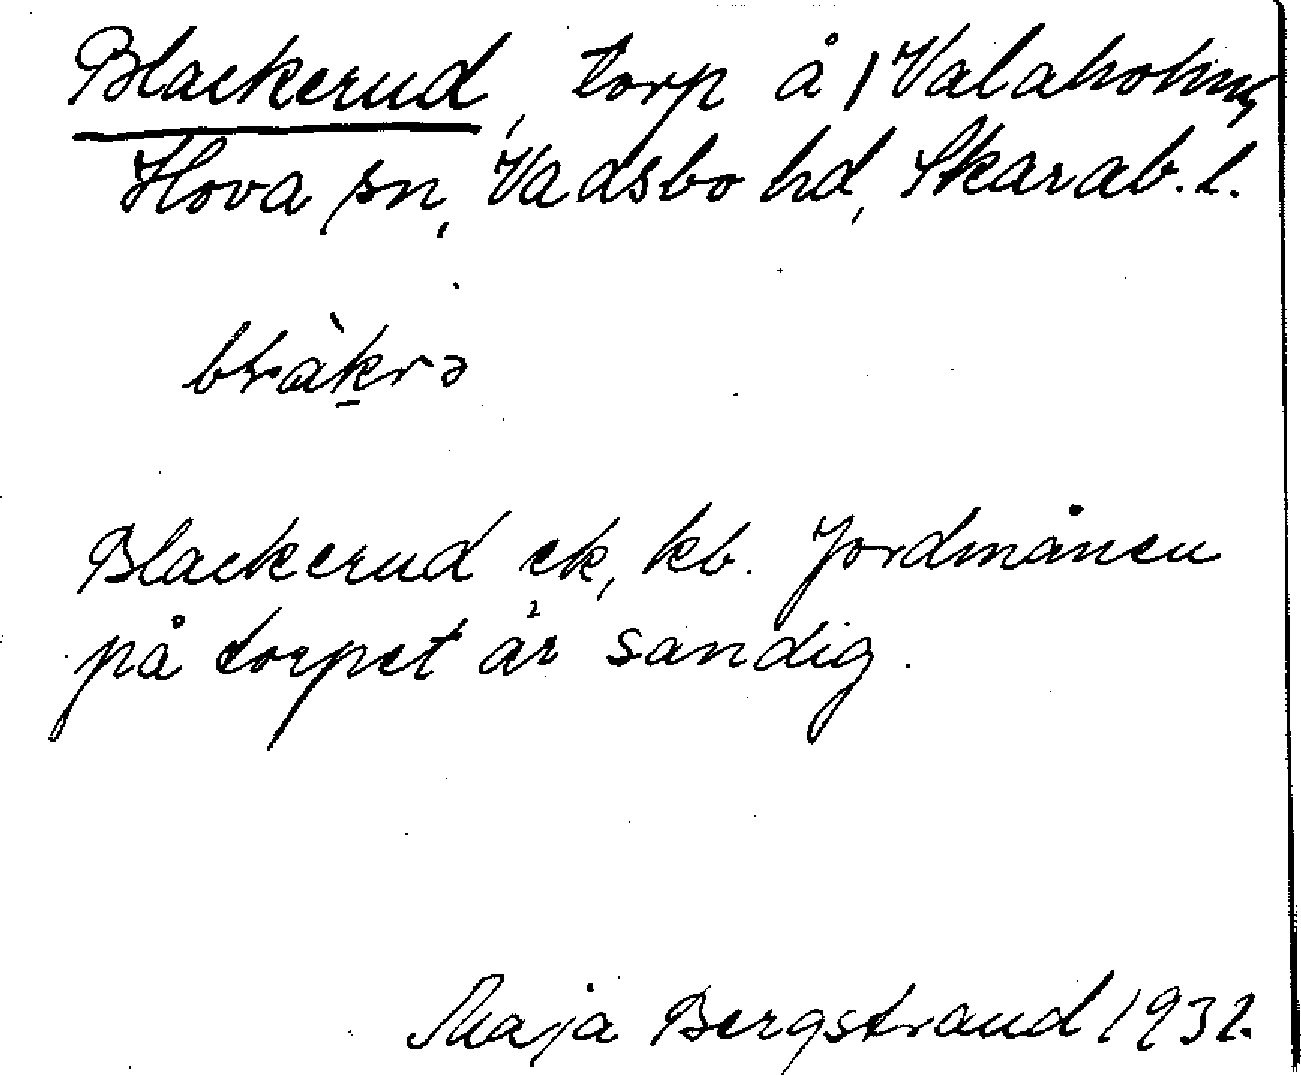 Blackerud, torp å 1 Valaholm,
Hova sn, Vadsbo hd, Skarab. l.
blàk̲rə
Blackerud ek, kb. Jordmånen
på torpet är sandig.
Maja Bergstrand 1932.